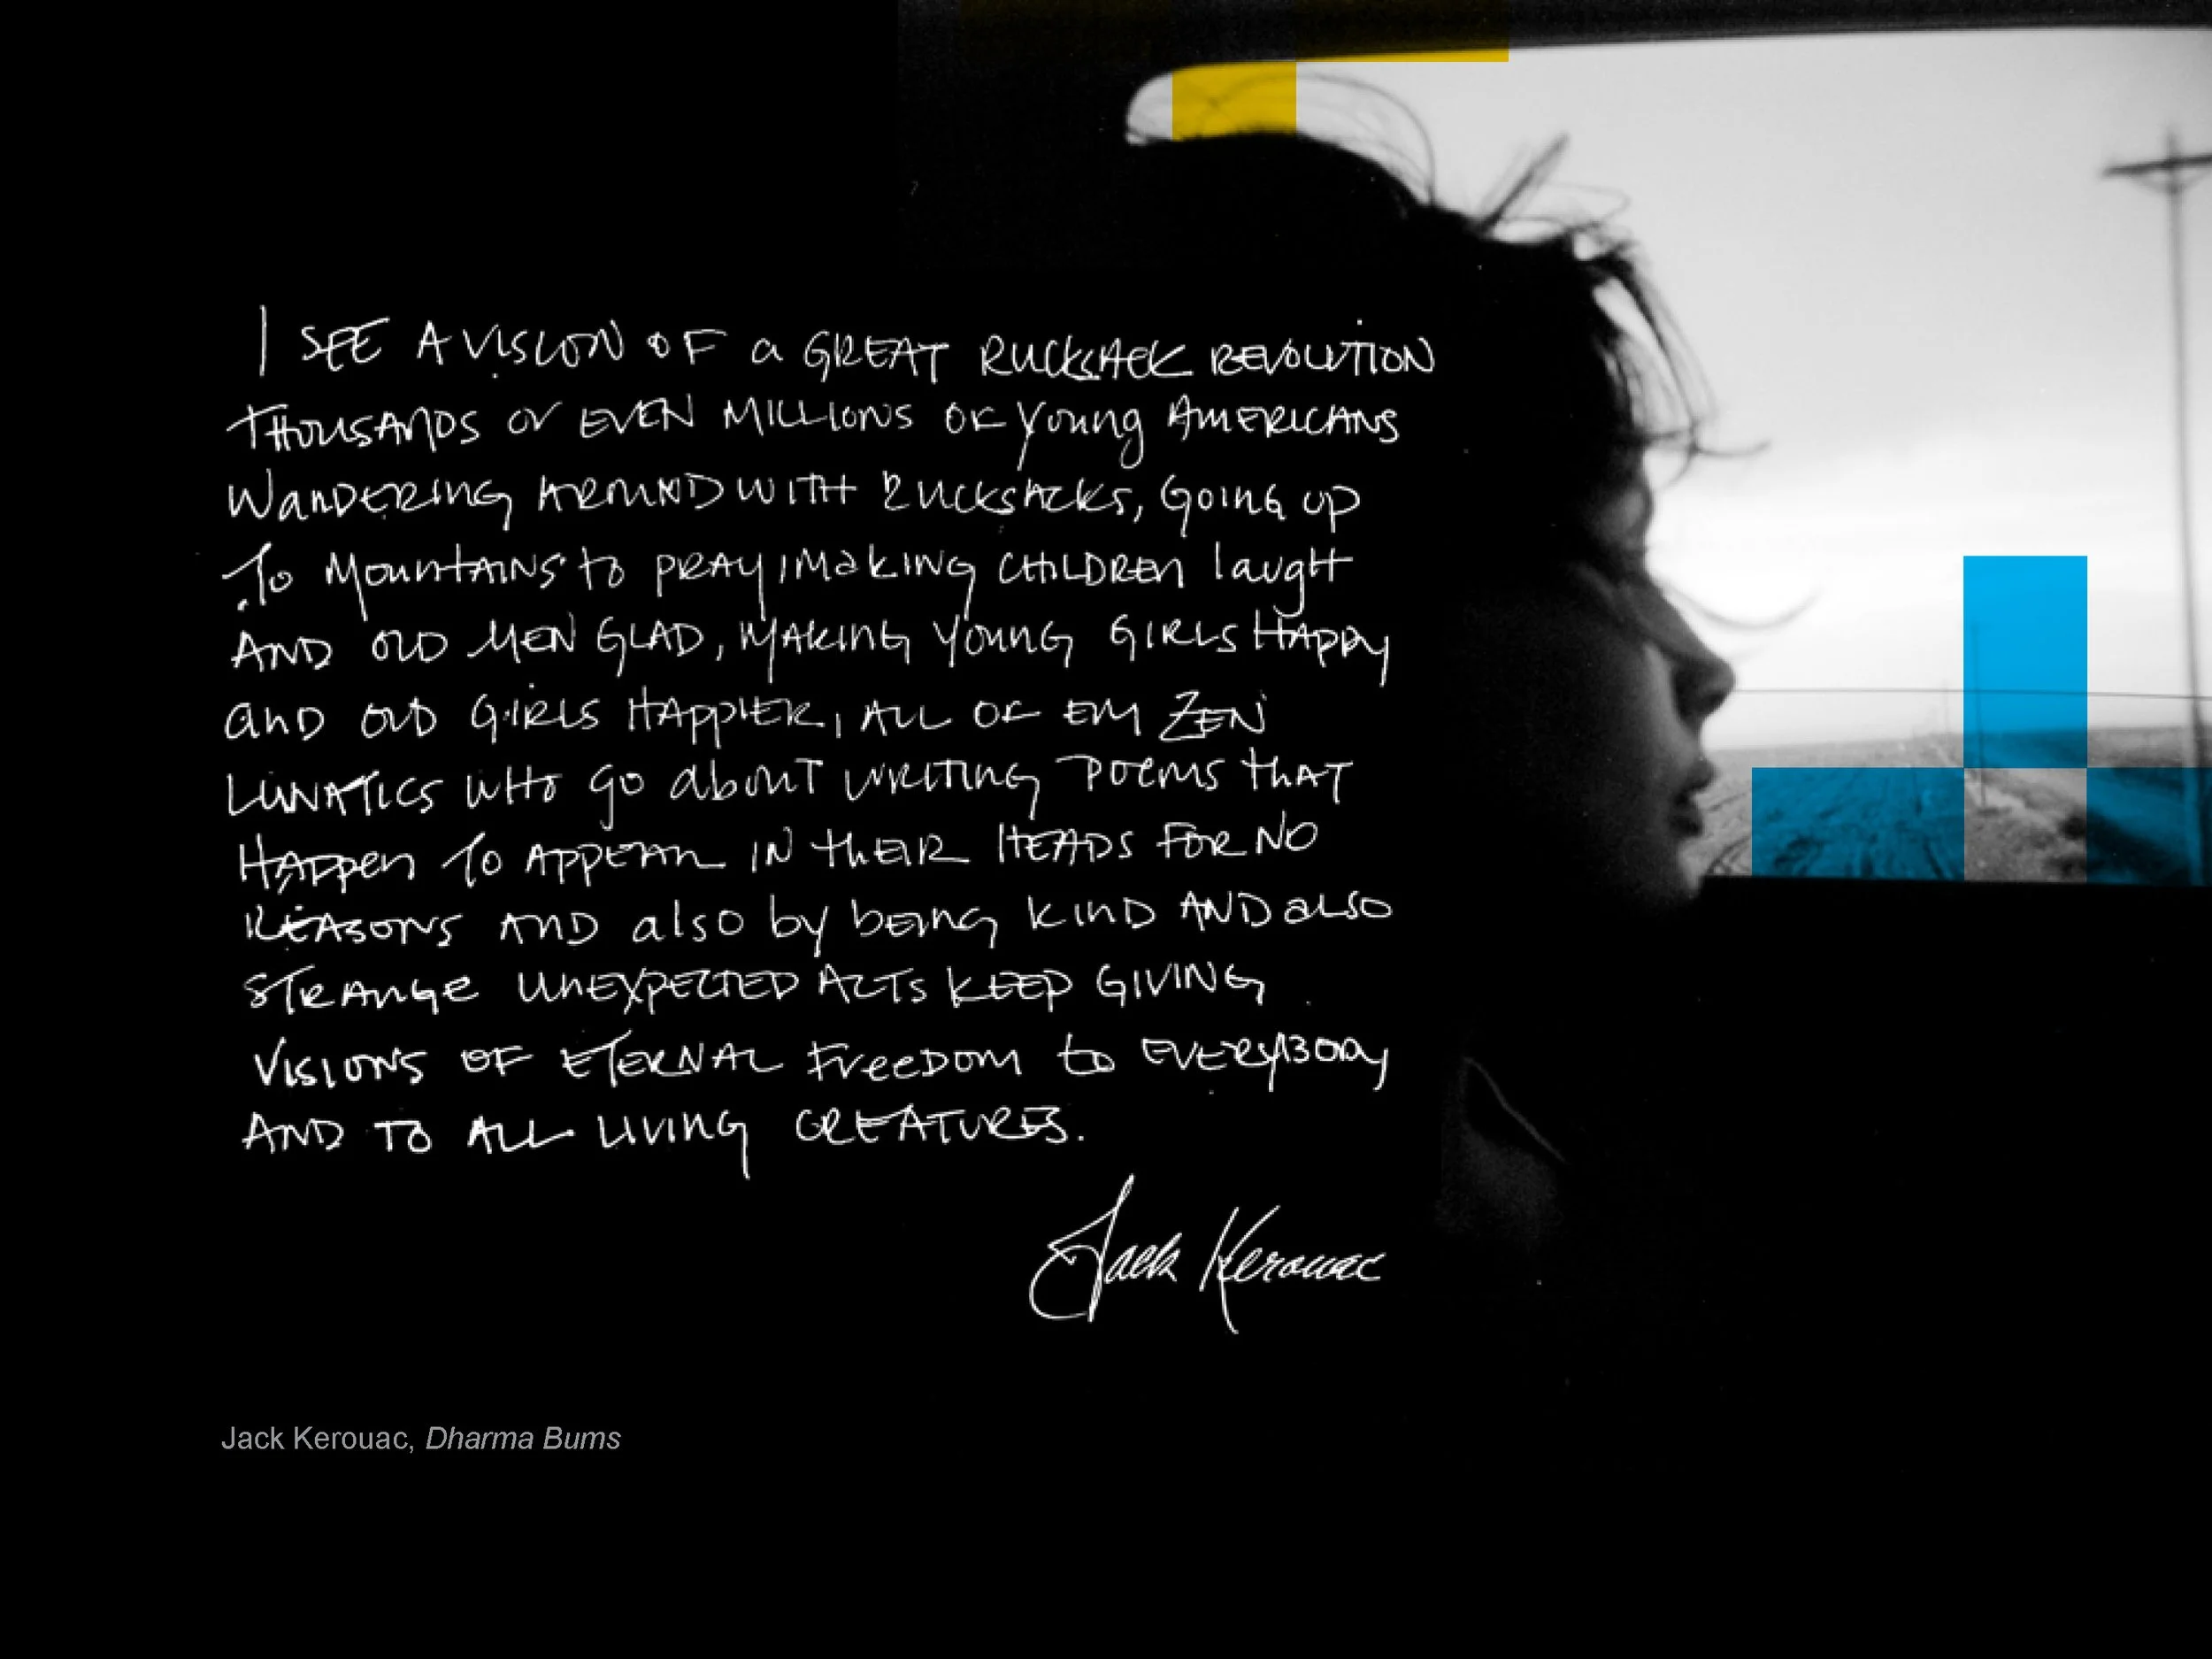 I SEE A VISION OF a GREAT RUCKSACK REVOLUTION
THOUSANDS OR EVEN MILLIONS OF young AMERICANS
WANDERING AROUND WITH RUCKSACKS, GOING UP
To MOUNTAINS to PRAY, MAKING CHILDREN laugh
AND OLD MEN GLAD, MAKING YOUNG GIRLS HAPPY
and OLD GIRLS HAPPIER, ALL OF EM ZEN
LUNATICS WHO go about WRITING POEMS that
HAPPEN To APPEAR IN THEIR HEADS FOR NO
REASONS AND also by being KIND AND also
STRANGE UNEXPECTED ACTS KEEP GIVING
VISIONS OF ETERNAL FREEDOM to EVERYBODY
AND TO ALL LIVING CREATURES.
Jack Kerouac
Jack Kerouac, Dharma Bums